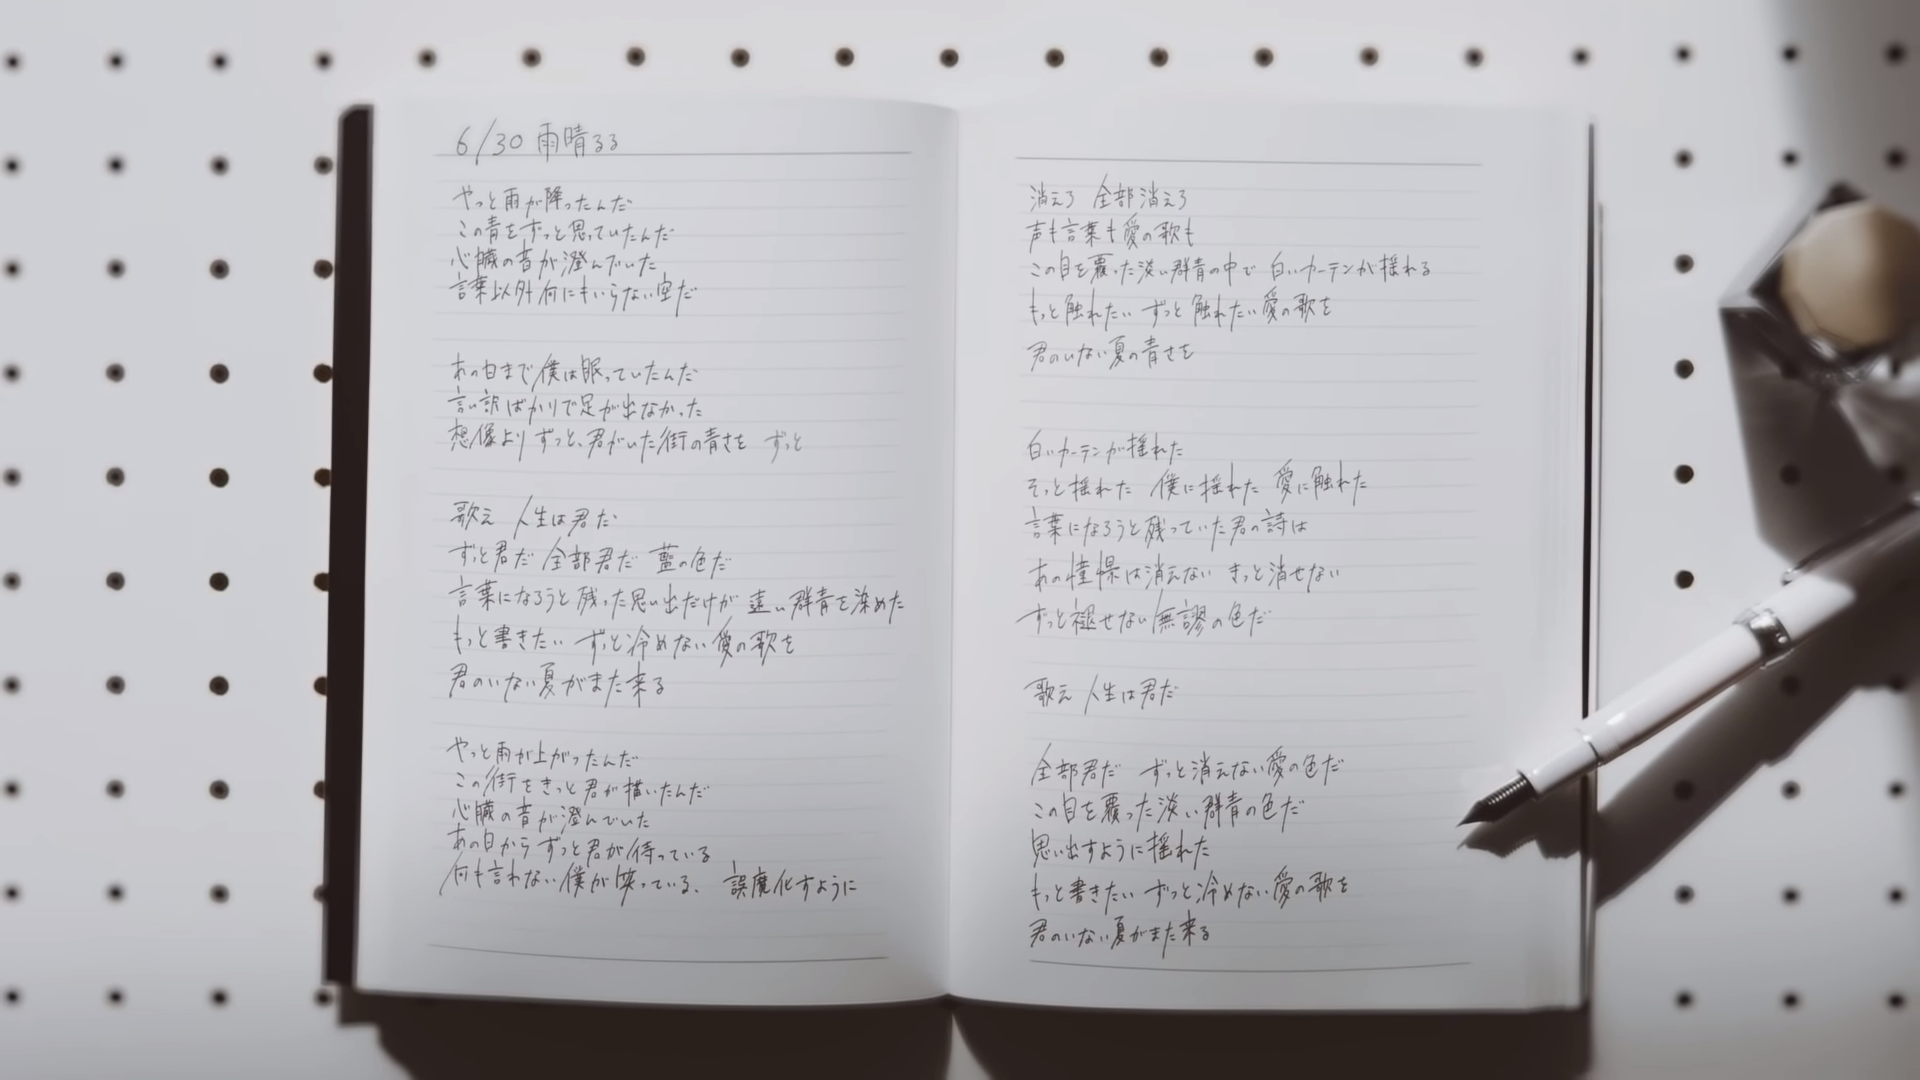 6/30 雨晴るる
やっと雨が降ったんだ
この青をずっと思っていたんだ
心臓の音が澄んでいた
言葉以外何にもいらない空だ
あの日まで僕は眠っていたんだ
言い訳ばかりで足が出なかった
想像よりずっと、君がいた街の青さを ずっと
歌え 人生は君だ
ずっと君だ 全部君だ 藍の色だ
言葉になろうと残った思い出だけが 遠い群青を染めた
もっと書きたい ずっと冷めない愛の歌を
君のいない夏がまた来る
やっと雨が上がったんだ
この街をきっと君が描いたんだ
心臓の音が澄んでいた
あの日からずっと君が待っている
何も言わない僕が笑っている、 誤魔化すように
消えろ 全部消えろ
声も言葉も愛の歌も
この目を覆った淡い群青の中で 白いカーテンが揺れる
もっと触れたい ずっと触れたい愛の歌を
君のいない夏の青さを
白いカーテンが揺れた
そっと揺れた 僕に揺れた 愛に触れた
言葉になろうと残っていた君の詩は
あの憧憬は消えない きっと消せない
ずっと褪せない無謬の色だ
歌え 人生は君だ
全部君だ ずっと消えない愛の色だ
この目を覆った淡い群青の色だ
思い出すように揺れた
もっと書きたい ずっと冷めない愛の歌を
君のいない夏がまた来る